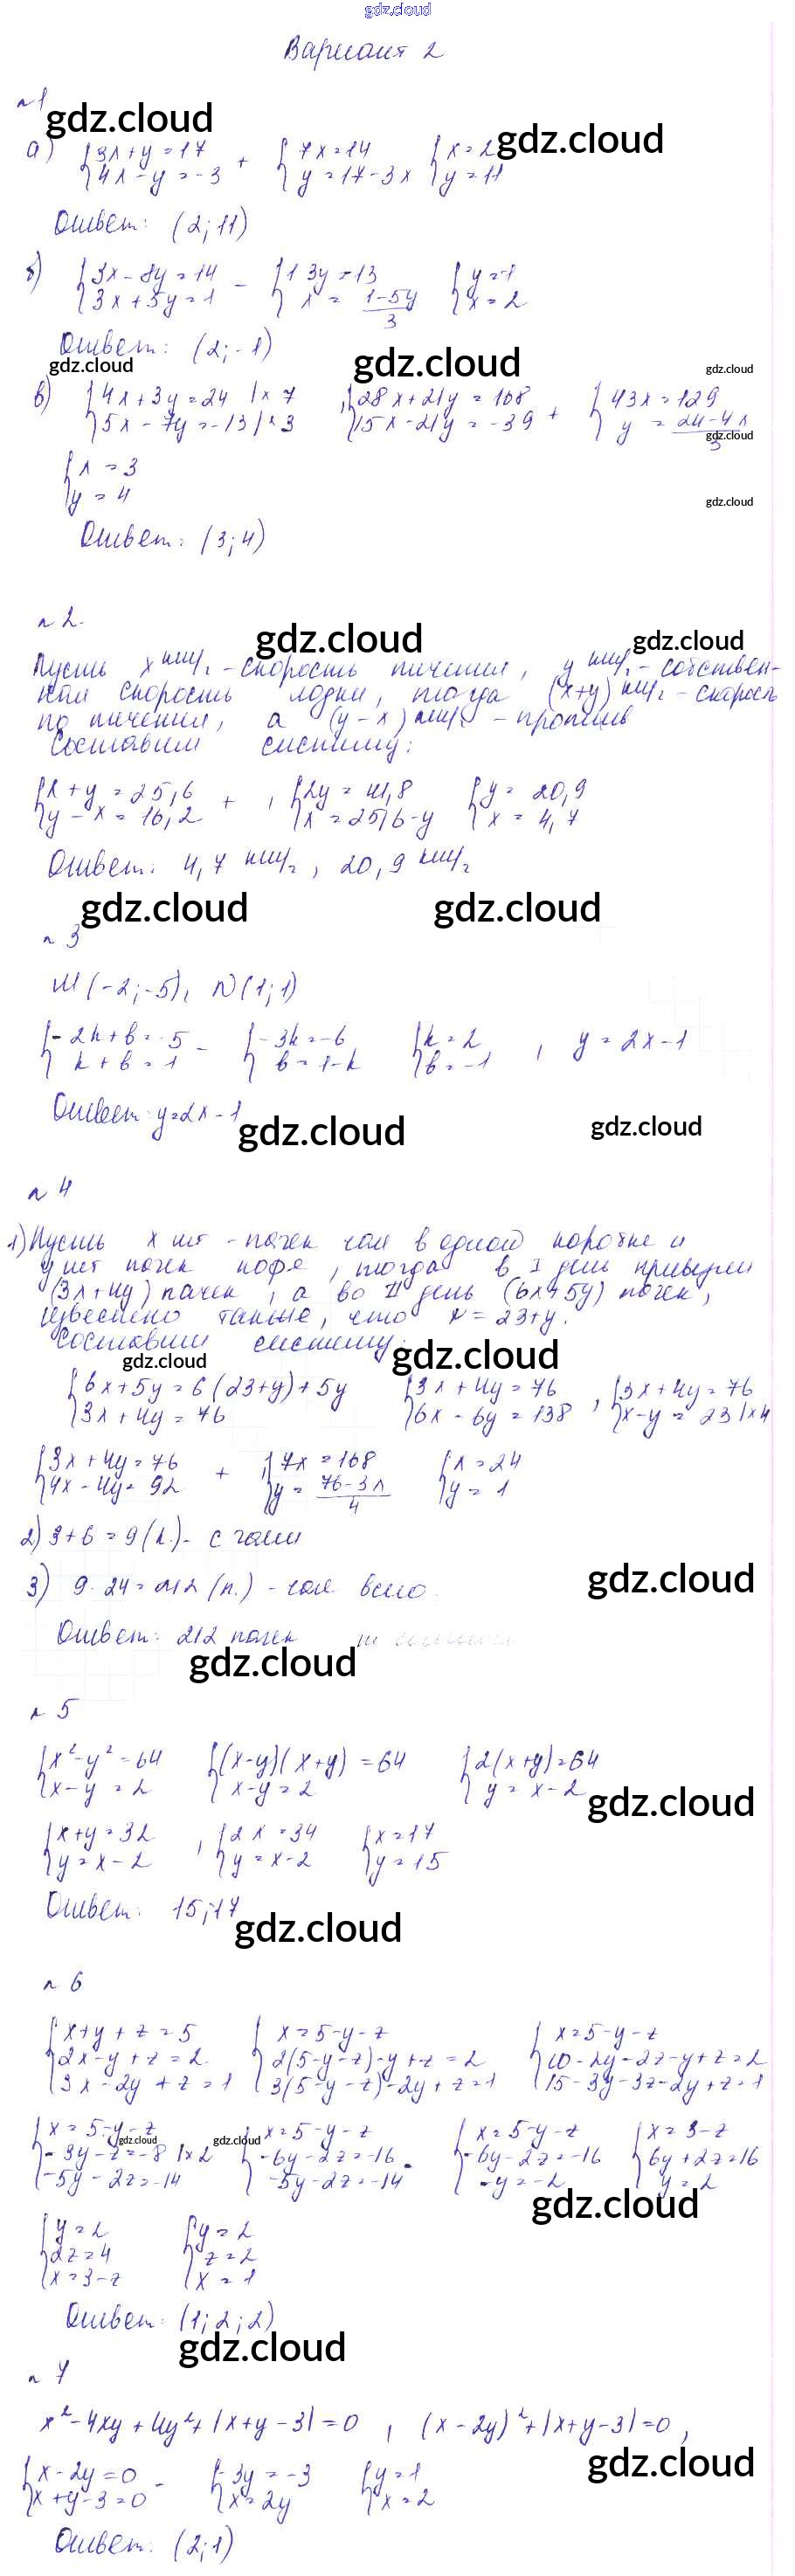 gdz.cloud
Вариант 2
n 1
gdz.cloud
а) {3x + y = 17 {4x - y = -3 + {7x = 14 {y = 17 - 3x {x = 2 {y = 11 gdz.cloud
Ответ: (2; 11)
б) {3x - 8y = 14 {3x + 5y = 1 - {13y = 13 {x = (1-5y)/3 {y = 1 {x = 2
Ответ: (2; -1)
gdz.cloud gdz.cloud gdz.cloud
в) {4x + 3y = 24 | x 7 {5x - 7y = -13 | x 3 , {28x + 21y = 168 {15x - 21y = -39 + {43x = 129 {y = (24-4x)/3
gdz.cloud
{x = 3 {y = 4
gdz.cloud
Ответ: (3; 4)
n 2.
gdz.cloud gdz.cloud
Пусть x км/ч - скорость течения, y км/ч - собствен-
ная скорость лодки, тогда (x+y) км/ч - скорость
по течению, а (y - x) км/ч - против
Составим систему:
{x + y = 25,6 {y - x = 16,2 + , {2y = 41,8 {x = 25,6 - y {y = 20,9 {x = 4,7
Ответ: 4,7 км/ч, 20,9 км/ч
gdz.cloud gdz.cloud
n 3
M (-2; -5), N (1; 1)
{-2k + b = -5 {k + b = 1 - {-3k = -6 {b = 1 - k {k = 2 {b = -1 , y = 2x - 1
Ответ: y = 2x - 1
gdz.cloud gdz.cloud
n 4
1) Пусть x шт - пачек чая в одной коробке и
y шт пачек кофе, тогда в I день привезли
(3x + 4y) пачек, а во II день (6x + 5y) пачек,
известно также, что x = 23 + y.
Составим систему:
gdz.cloud gdz.cloud
{6x + 5y = 6(23+y) + 5y {3x + 4y = 76 {3x + 4y = 76 {6x - 6y = 138 , {3x + 4y = 76 {x - y = 23 | x 4
{3x + 4y = 76 {4x - 4y = 92 + , {7x = 168 {y = (76-3x)/4 {x = 24 {y = 1
2) 3 + 6 = 9 (к.) - с чаем
3) 9 · 24 = 212 (п.) - чая всего.
gdz.cloud
Ответ: 212 пачек
gdz.cloud
n 5
{x² - y² = 64 {x - y = 2 {(x-y)(x+y) = 64 {x - y = 2 {2(x+y) = 64 {y = x - 2
gdz.cloud
{x + y = 32 {y = x - 2 , {2x = 34 {y = x - 2 {x = 17 {y = 15
Ответ: 15; 17
gdz.cloud
n 6
{x + y + z = 5 {2x - y + z = 2 {3x - 2y + z = 1 {x = 5 - y - z {2(5-y-z) - y + z = 2 {3(5-y-z) - 2y + z = 1 {x = 5 - y - z {10 - 2y - 2z - y + z = 2 {15 - 3y - 3z - 2y + z = 1
{x = 5 - y - z {-3y - z = -8 | x 2 {-5y - 2z = -14 {x = 5 - y - z {-6y - 2z = -16 {-5y - 2z = -14 - {x = 5 - y - z {-6y - 2z = -16 {-y = -2 {x = 3 - z {6y + 2z = 16 {y = 2
gdz.cloud gdz.cloud gdz.cloud
{y = 2 {2z = 4 {x = 3 - z {y = 2 {z = 2 {x = 1
Ответ: (1; 2; 2)
gdz.cloud
n 7
x² - 4xy + 4y² + |x + y - 3| = 0 , (x - 2y)² + |x + y - 3| = 0,
gdz.cloud
{x - 2y = 0 {x + y - 3 = 0 - {-3y = -3 {x = 2y {y = 1 {x = 2
Ответ: (2; 1)